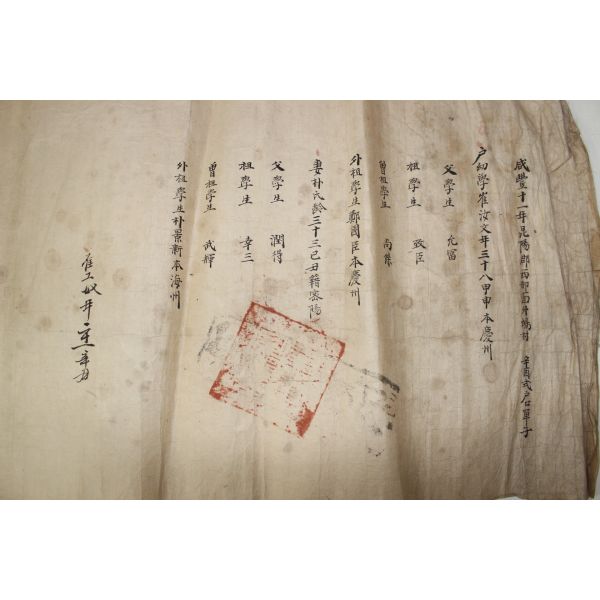 咸豐十一年昆陽郡西部面 村 辛酉式戶口單子
戶幼學崔汝文年三十八甲申本慶州
父學生 允富
祖學生 致臣
曾祖學生 尚
外祖學生鄭國臣本慶州
妻朴氏齡三十三己丑籍密陽
父學生 潤得
祖學生 幸三
曾祖學生 武輝
外祖學生朴景新本海州
奴